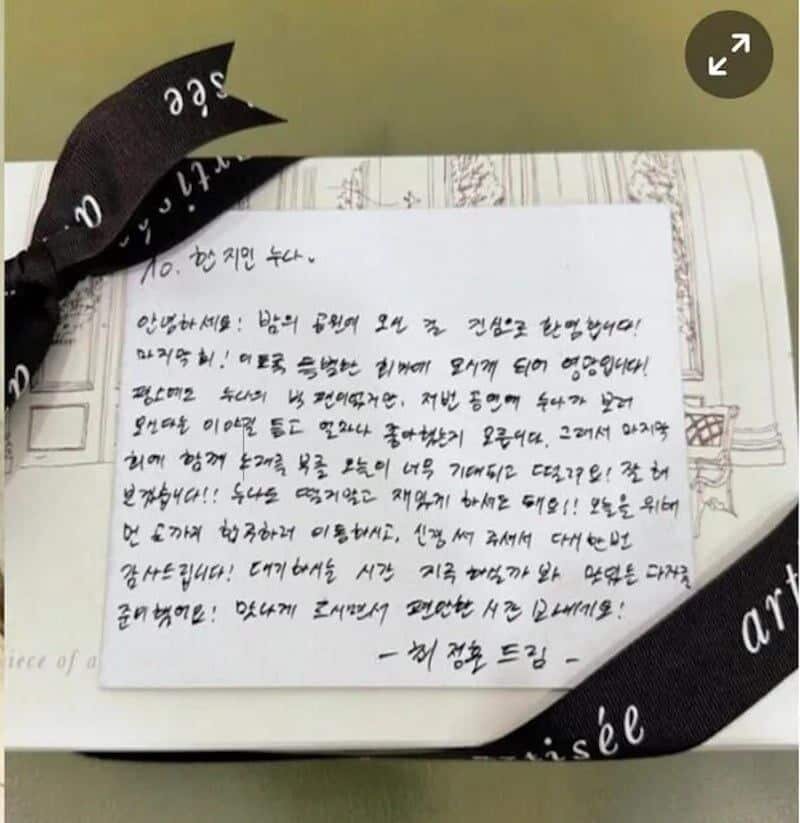 To. 한 지민 누나.
안녕하세요! 밤의 공원에 오신 걸 진심으로 환영합니다!
마지막회! 이토록 특별한 회차에 모시게 되어 영광입니다!
평소에도 누나의 빅 팬이었지만, 저번 공연에 누나가 보러
오신다는 이야길 듣고 얼마나 좋아했는지 모릅니다. 그래서 마지막
회에 함께 노래를 부를 오늘이 너무 기대되고 떨려요! 잘 해
보겠습니다!! 누나도 떨지말고 재밌게 하셔도 돼요!! 오늘을 위해
먼 곳까지 합주하러 이동하시고, 신경 써 주셔서 다시 한번
감사드립니다! 대기하시는 시간 지루 하실까 봐 맛있는 다과를
준비했어요! 맛나게 드시면서 편안한 시간 보내세요!
- 최 정훈 드림 -
artisée
artisée
iece of a